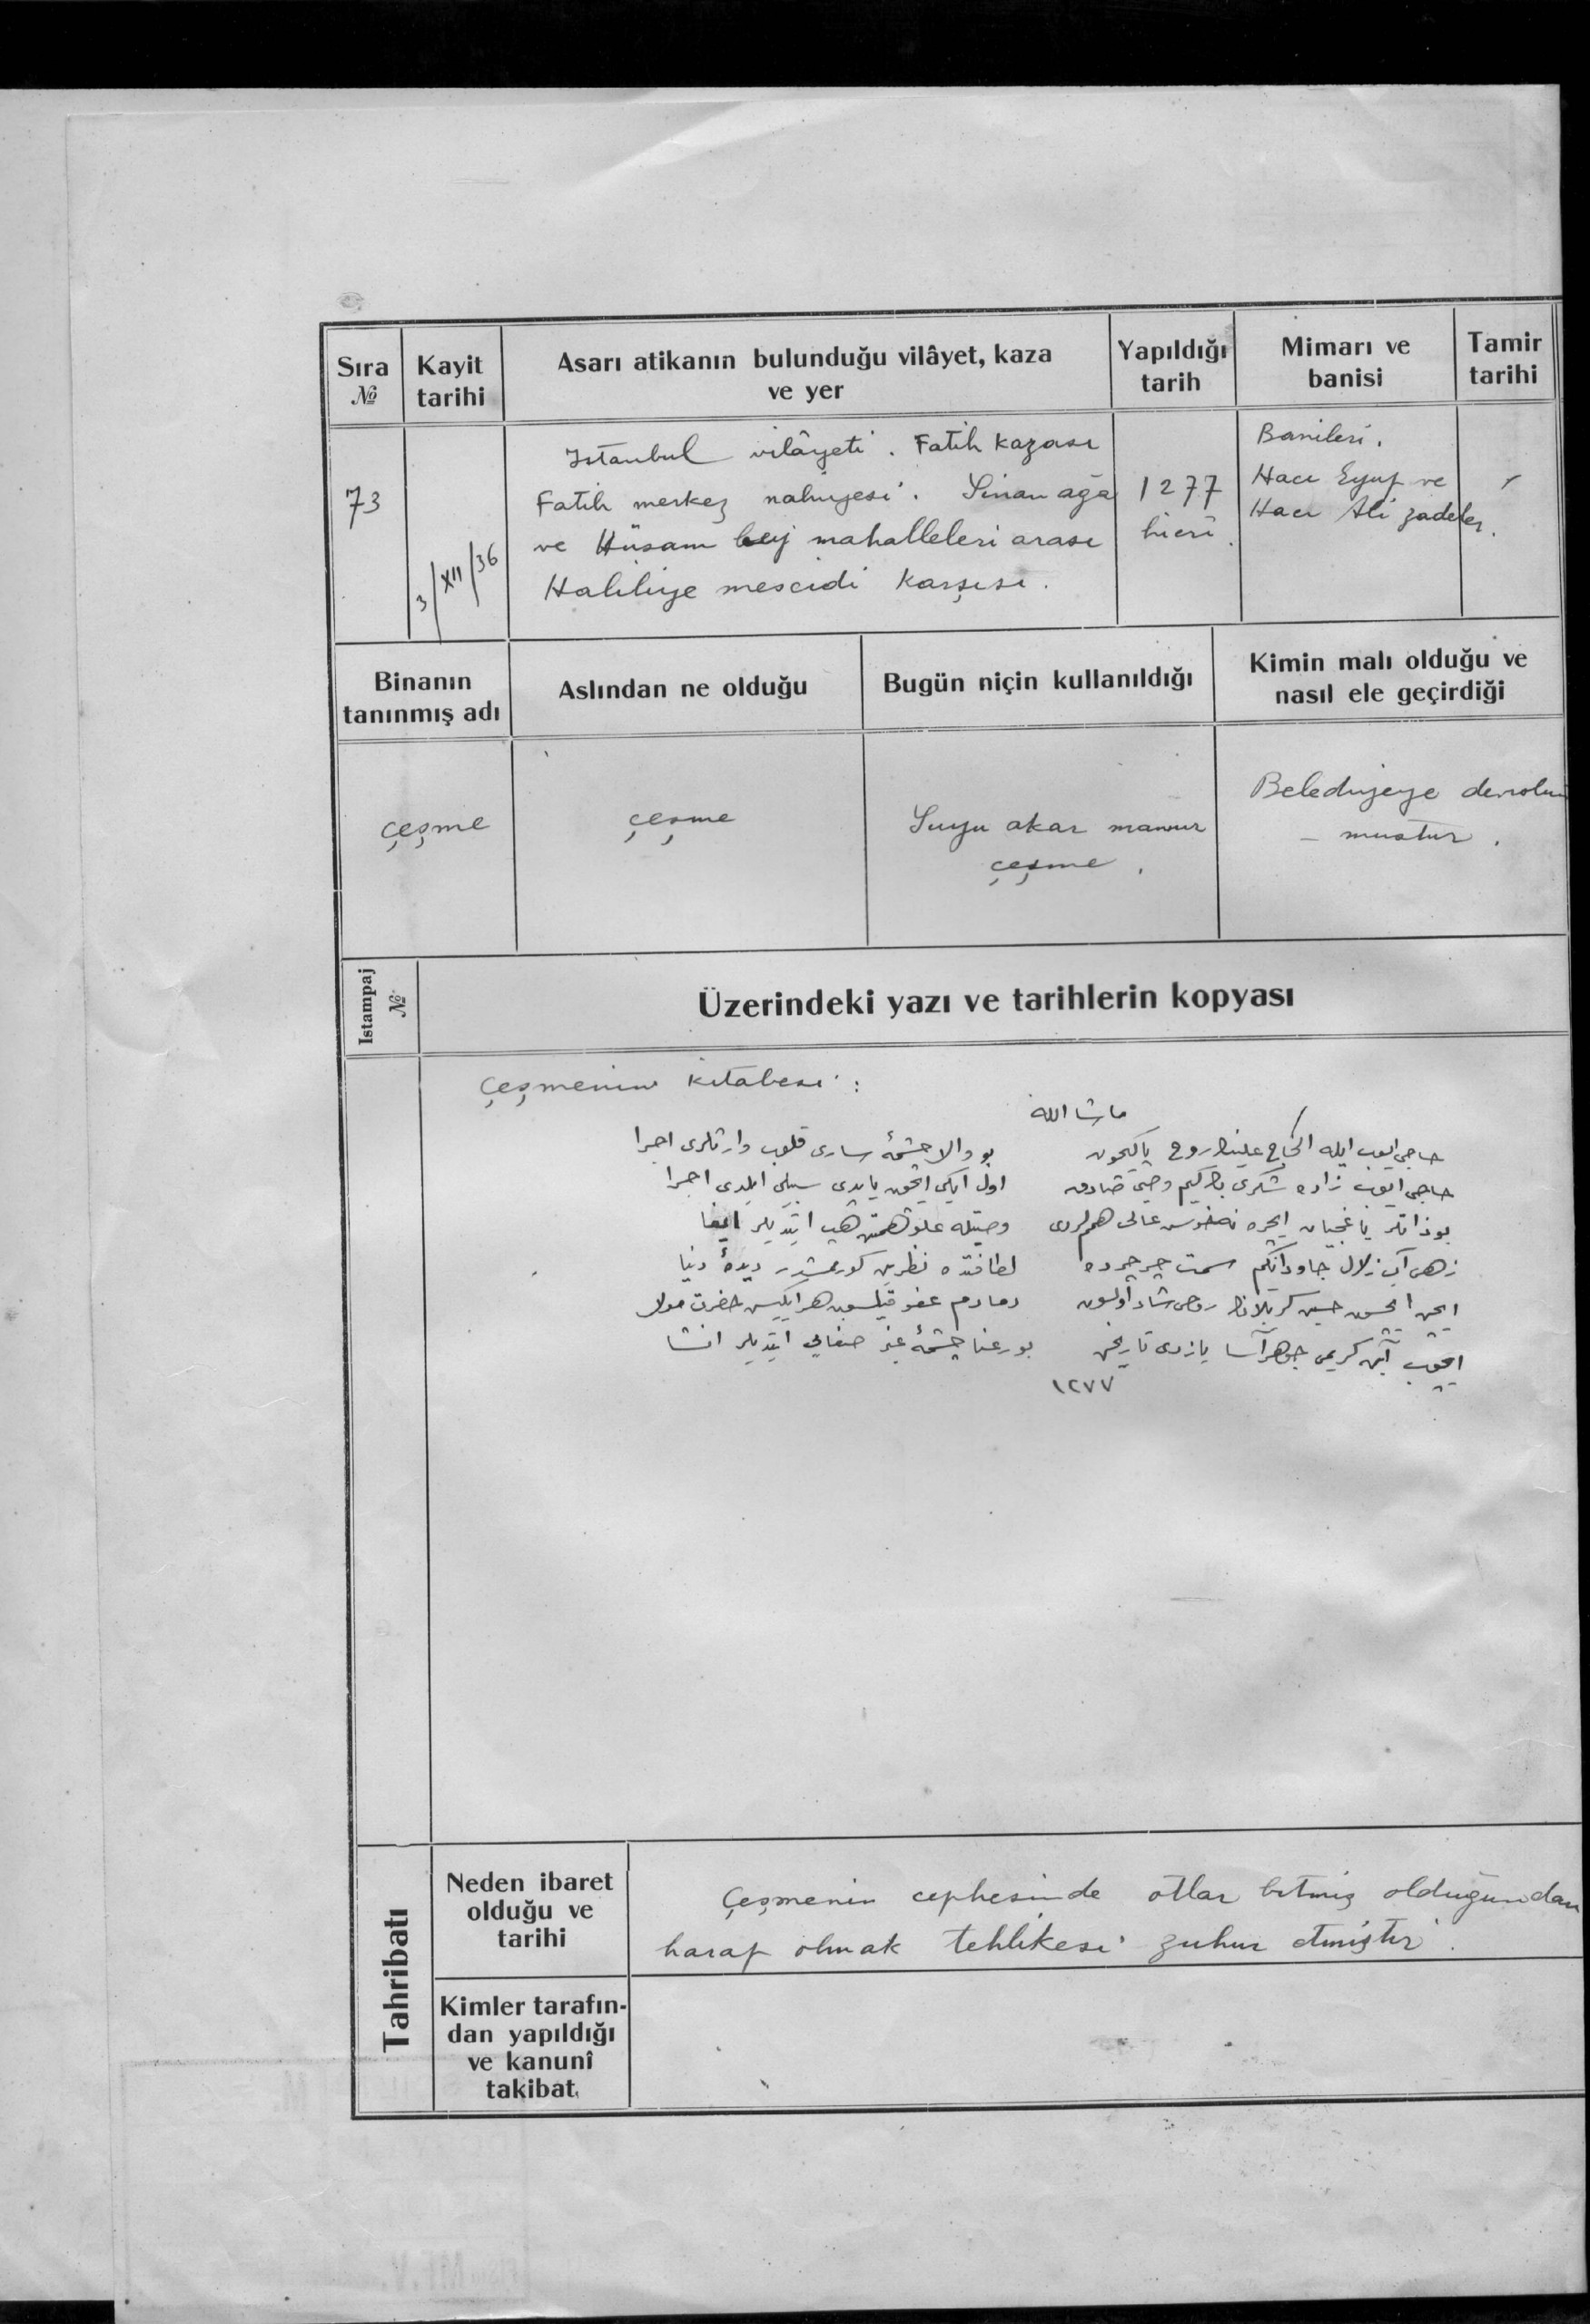 Sıra № Kayit tarihi Asarı atikanın bulunduğu vilâyet, kaza ve yer Yapıldığı tarih Mimarı ve banisi Tamir tarihi
73
3/XII/36
Istanbul vilâyeti. Fatih kazası
Fatih merkez nahiyesi. Sinan ağa
ve Hüsam bey mahalleleri arası
Haliliye mescidi karşısı.
1277
hicrî.
Banileri.
Hacı Eyup ve
Hacı Ali zadeler.
Binanın tanınmış adı
Aslından ne olduğu
Bugün niçin kullanıldığı
Kimin malı olduğu ve nasıl ele geçirdiği
çeşme
çeşme
Suyu akar mamur
çeşme.
Belediyeye devrolun
- muştur.
Istampaj №
Üzerindeki yazı ve tarihlerin kopyası
Çeşmenin kitabesi:
ماشا الله
حاجی ایوب ایله الحاج علینك روح پاكیچون
بو والا چشمهٔ ساری قلوب وارثلری اجرا
حاجی ایوب زاده شكری بك كیم وصی صادق
اول ایكی ایچون یاپدی سبیلی ایلدی اجرا
بو ذاتلر یاغجیان ایچره نفوس عالی هملردی
وصیتله علو همتن هپ ایتدیلر ایفا
زهی آب زلال جاودانكم سمت چرچرده
لطافتده نظیرین كورممشدر دیدهٔ دنیا
ایچن ایچسون حسین كربلانك روحی شاد اولسون
دمادم عفو قیلسون هر ایكیسن حضرت مولا
ایچوب آبن كریمی جوهرآسا یازدی تاریخن
بو رعنا چشمهٔ عین صفایی ایتدیلر انشا
١٢٧٧
Tahribatı
Neden ibaret olduğu ve tarihi
Çeşmenin cephesinde otlar bitmiş olduğundan
harap olmak tehlikesi zuhur etmiştir.
Kimler tarafın-
dan yapıldığı
ve kanunî
takibat.